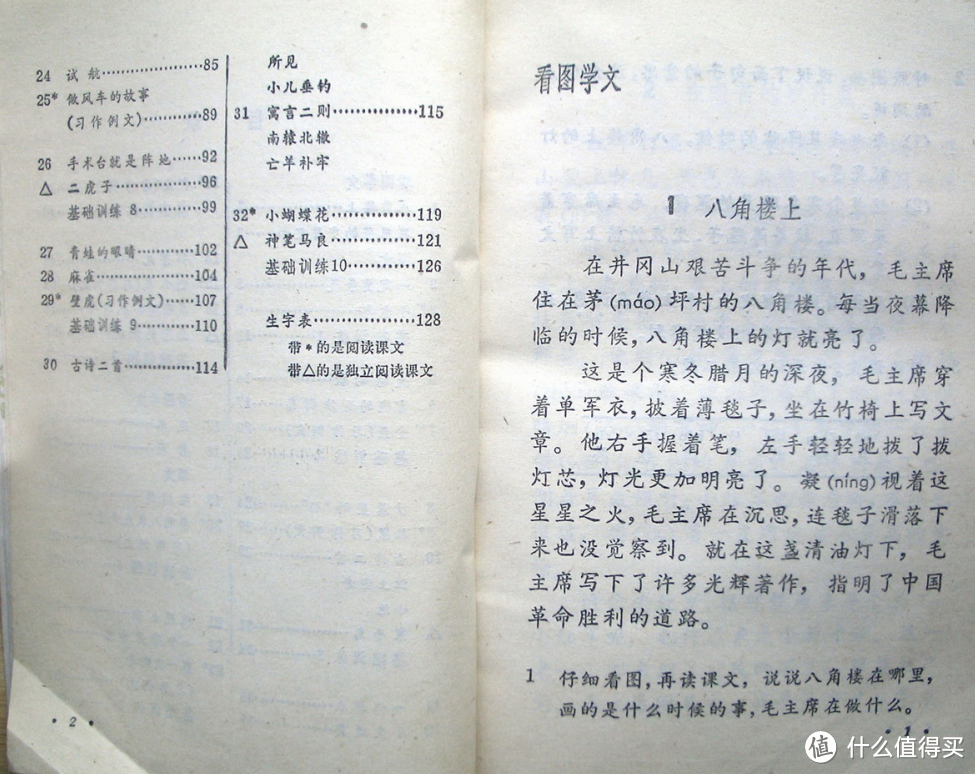 24 试航……………………85
25* 做风车的故事
(习作例文)…………89
26 手术台就是阵地……92
△ 二虎子………………96
基础训练8……………99
27 青蛙的眼睛…………102
28 麻雀…………………104
29* 壁虎(习作例文)……107
基础训练9……………110
30 古诗二首……………114
所见
小儿垂钓
31 寓言二则……………115
南辕北辙
亡羊补牢
32* 小蝴蝶花……………119
△ 神笔马良……………121
基础训练10…………126
生字表………………128
带*的是阅读课文
带△的是独立阅读课文
·2·
看图学文
1 八角楼上
在井冈山艰苦斗争的年代，毛主席
住在茅(máo)坪村的八角楼。每当夜幕降
临的时候，八角楼上的灯就亮了。
这是个寒冬腊月的深夜，毛主席穿
着单军衣，披着薄毯子，坐在竹椅上写文
章。他右手握着笔，左手轻轻地拨了拨
灯芯，灯光更加明亮了。凝(níng)视着这
星星之火，毛主席在沉思，连毯子滑落下
来也没觉察到。就在这盏清油灯下，毛
主席写下了许多光辉著作，指明了中国
革命胜利的道路。
1 仔细看图，再读课文，说说八角楼在哪里，
画的是什么时候的事，毛主席在做什么。
·1·
值 什么值得买